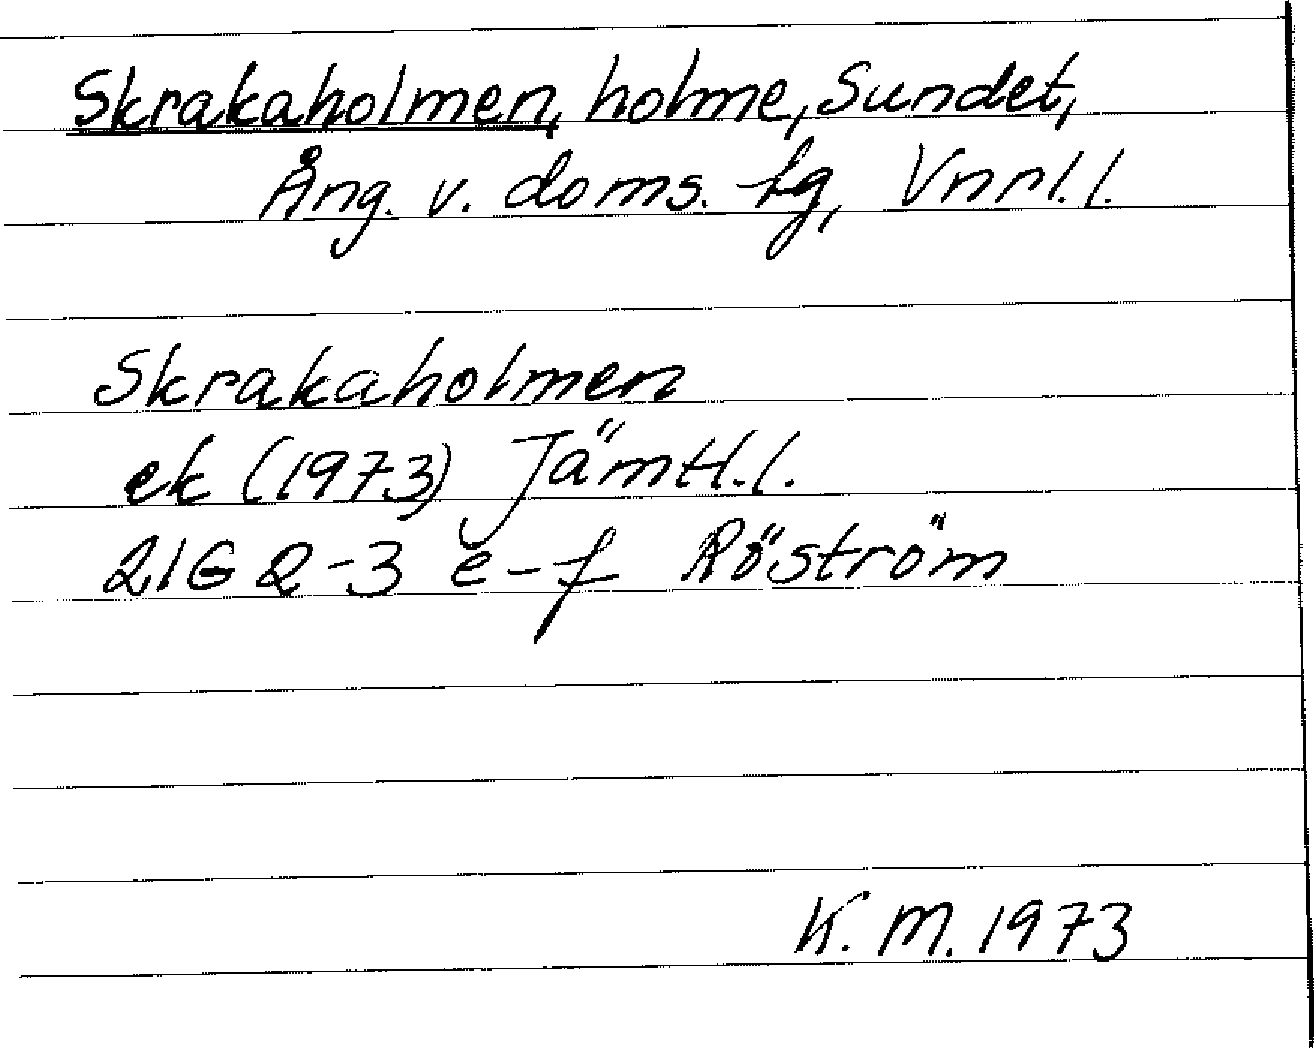 Skrakaholmen, holme, Sundet,
Ång. v. doms. fg, Vnrl. l.
Skrakaholmen
ek (1973) Jämtl. l.
21G 2-3 e-f Röström
K. M. 1973